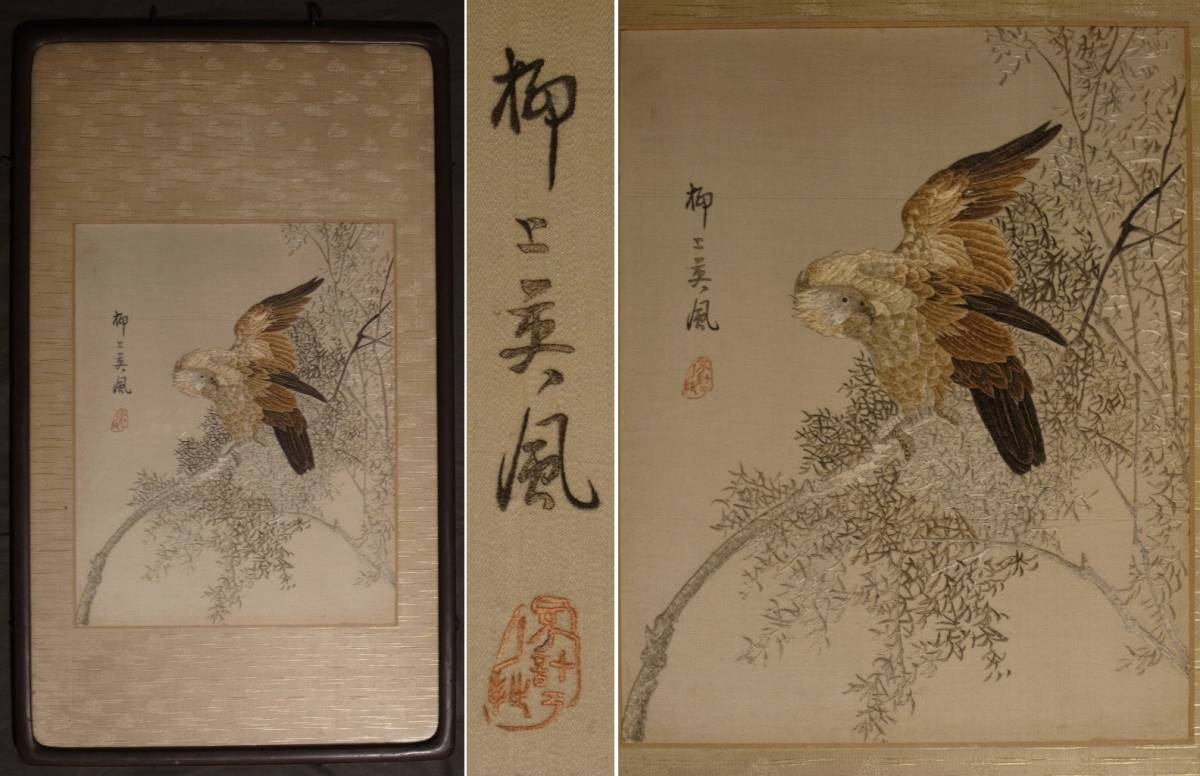 柳上英風
柳上英風
柳上英風